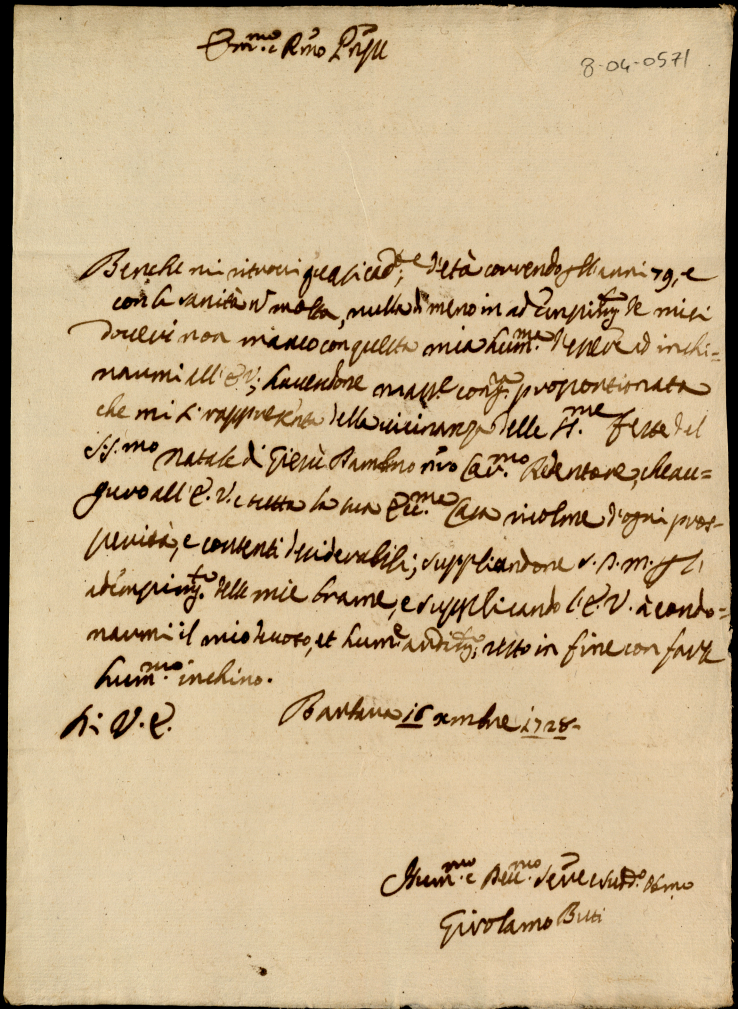 Em.mo e R.mo Prñpe
8-04-0571
Benche mi ritrovi quasi cad.te d'età correndo gl'anni 79, e
con la sanità nõ molta, nulla di meno in adẽmpim.to de miei
doveri non manco con questa mia hum.ma d'essere ad inchi=
narmi all'E.V., havendone magg.e cong.ra proportionata
che mi si rappresenta della vicinanza delle SS.me feste del
S.S.mo natale di Giesù Bambino nr̃o Cle.mo Redentore, che au=
guro all'E.V. e tutta la sua Ecc.ma Casa ricolme d'ogni pros=
perità, e contenti desiderabili; supplicandone S.D.M. per l'
adẽmpim.to delle mie brame, e supplicando l'E.V. à condo=
narmi il mio devoto, et hum.e ardim.to, resto in fine con farle
hum.mo inchino.
Di V.E. Barbara 16 xmbre 1728
Hum.mo e Dev.mo Serve e sudd.o Ob.mo
Girolamo Buti